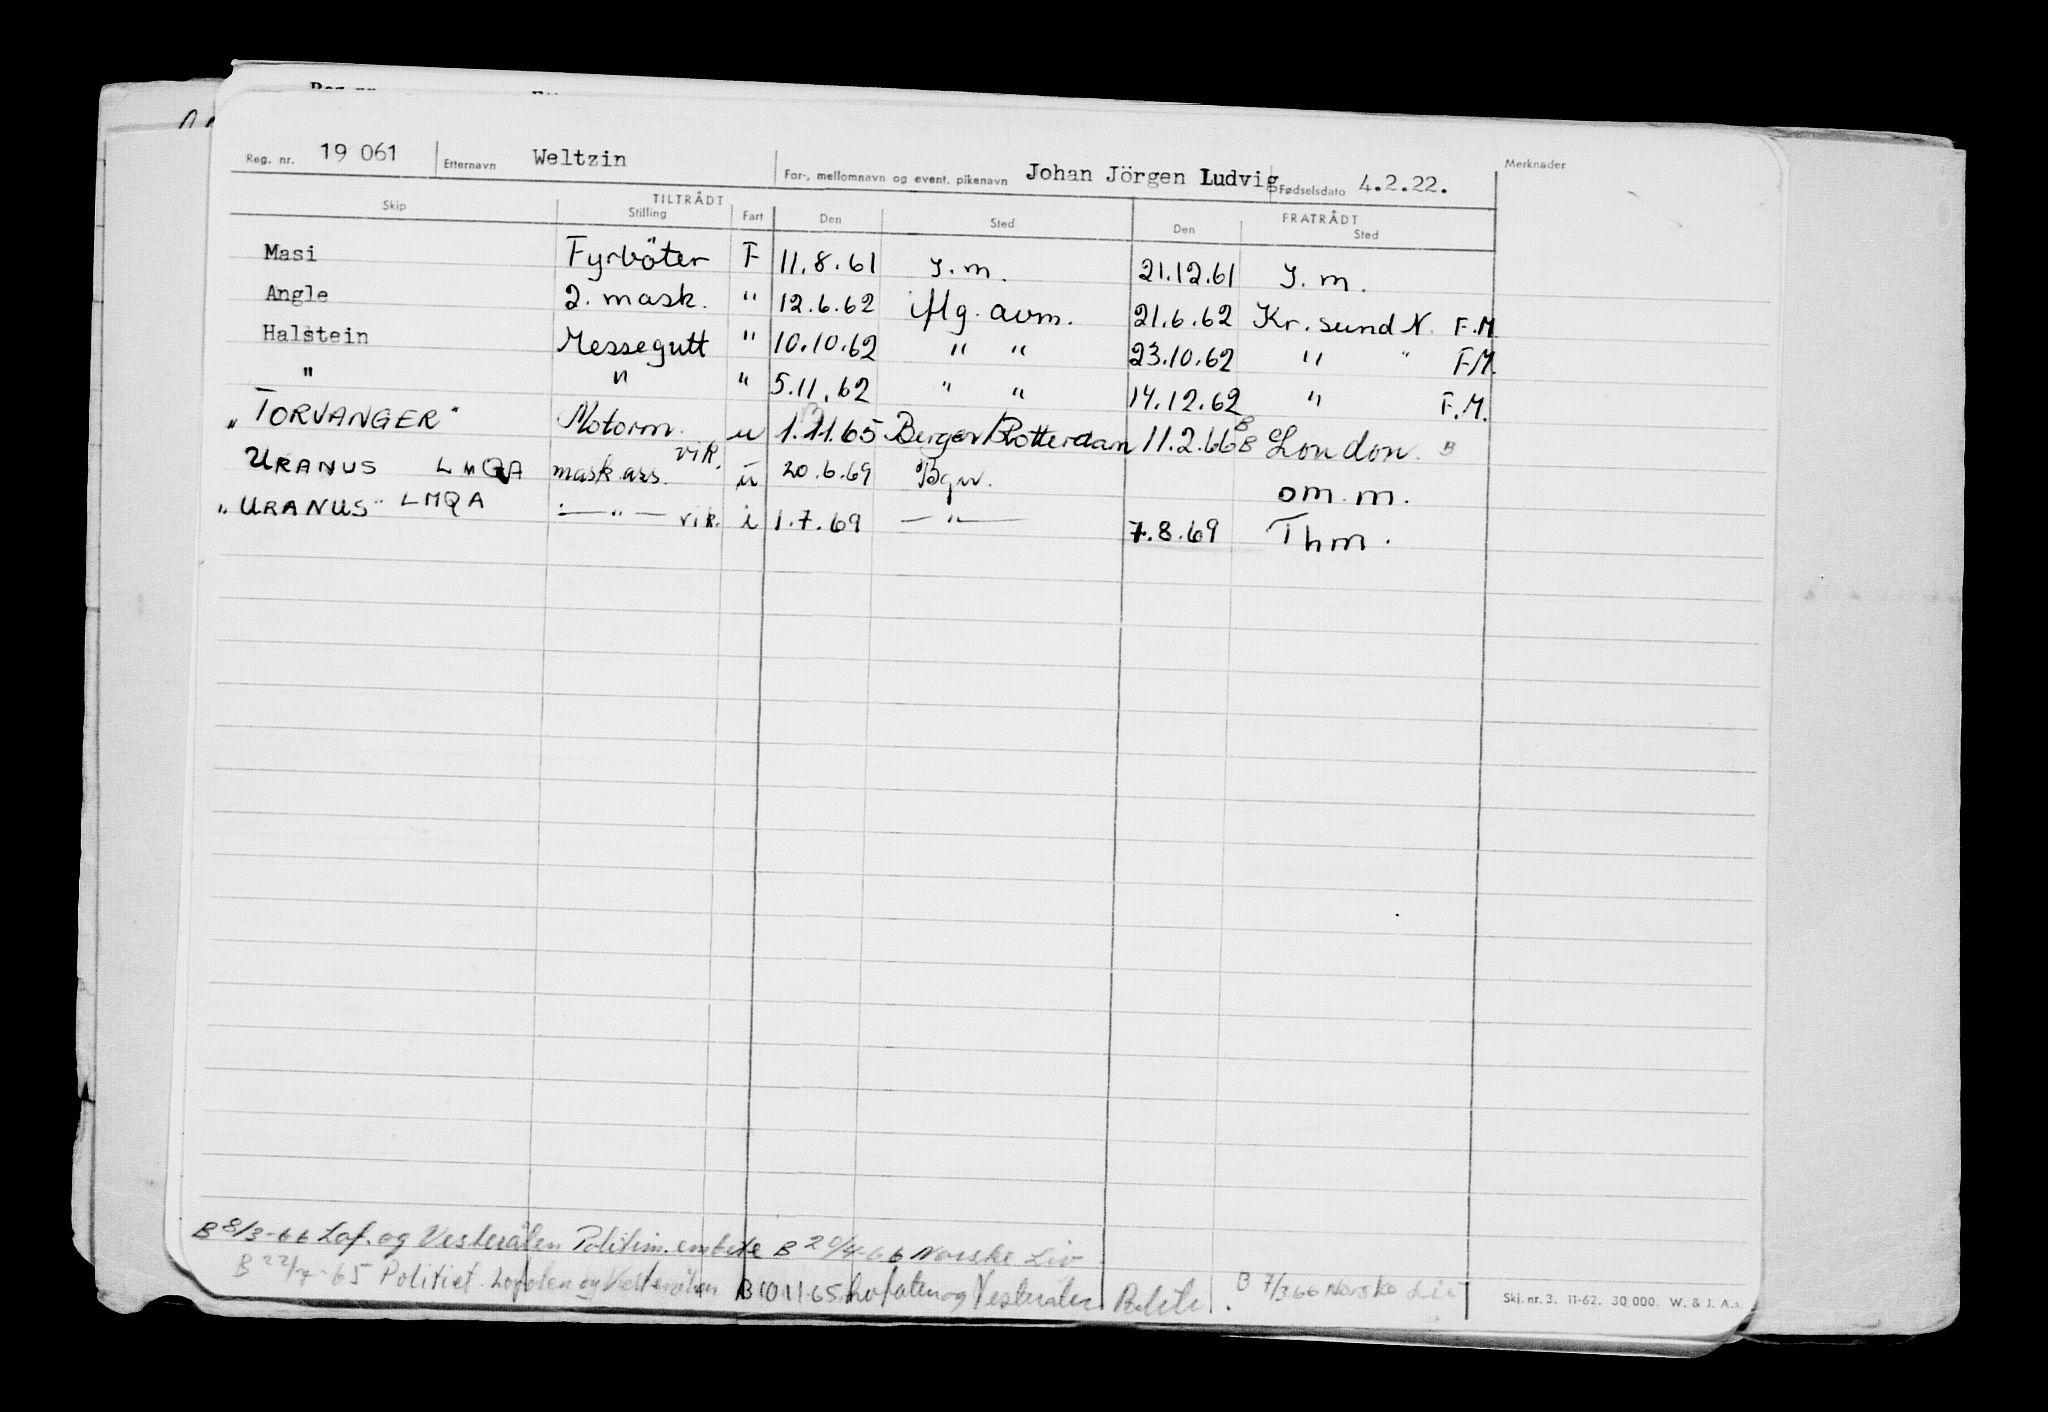 Reg. nr. 19 061 Etternavn Weltzin For-, mellomnavn og event. pikenavn Johan Jörgen Ludvig Fødselsdato 4.2.22. Merknader
TILTRÅDT FRATRÅDT
Skip Stilling Fart Den Sted Den Sted
Masi Fyrböter F 11.8.61 I.m. 21.12.61 I.m.
Angle 2. mask. " 12.6.62 iflg. avm. 21.6.62 Kr. sund N. F.M.
Halstein Messegutt " 10.10.62 " " 23.10.62 " " F.M.
" " " 5.11.62 " " 14.12.62 " F.M.
"TORVANGER" Motorm. u 1.11.65 Bergen/Rotterdam 11.2.66 B London. B
URANUS LMQA mask.ass. vik. u 20.6.69 Bgn. om.m.
"URANUS" LMQA —"— vik. i 1.7.69 —"— 7.8.69 Thm.
B 8/3-66 Lof. og Vesterålen Politim. embete B 20/4-66 Norske Liv
B 22/7-65 Politiet Lofoten og Vesterålen B 10 11-65 Lofoten og Vesterålen Politi. B 7/3 66 Norske Liv
Skj. nr. 3. 11-62. 30 000. W. & J. A.s.